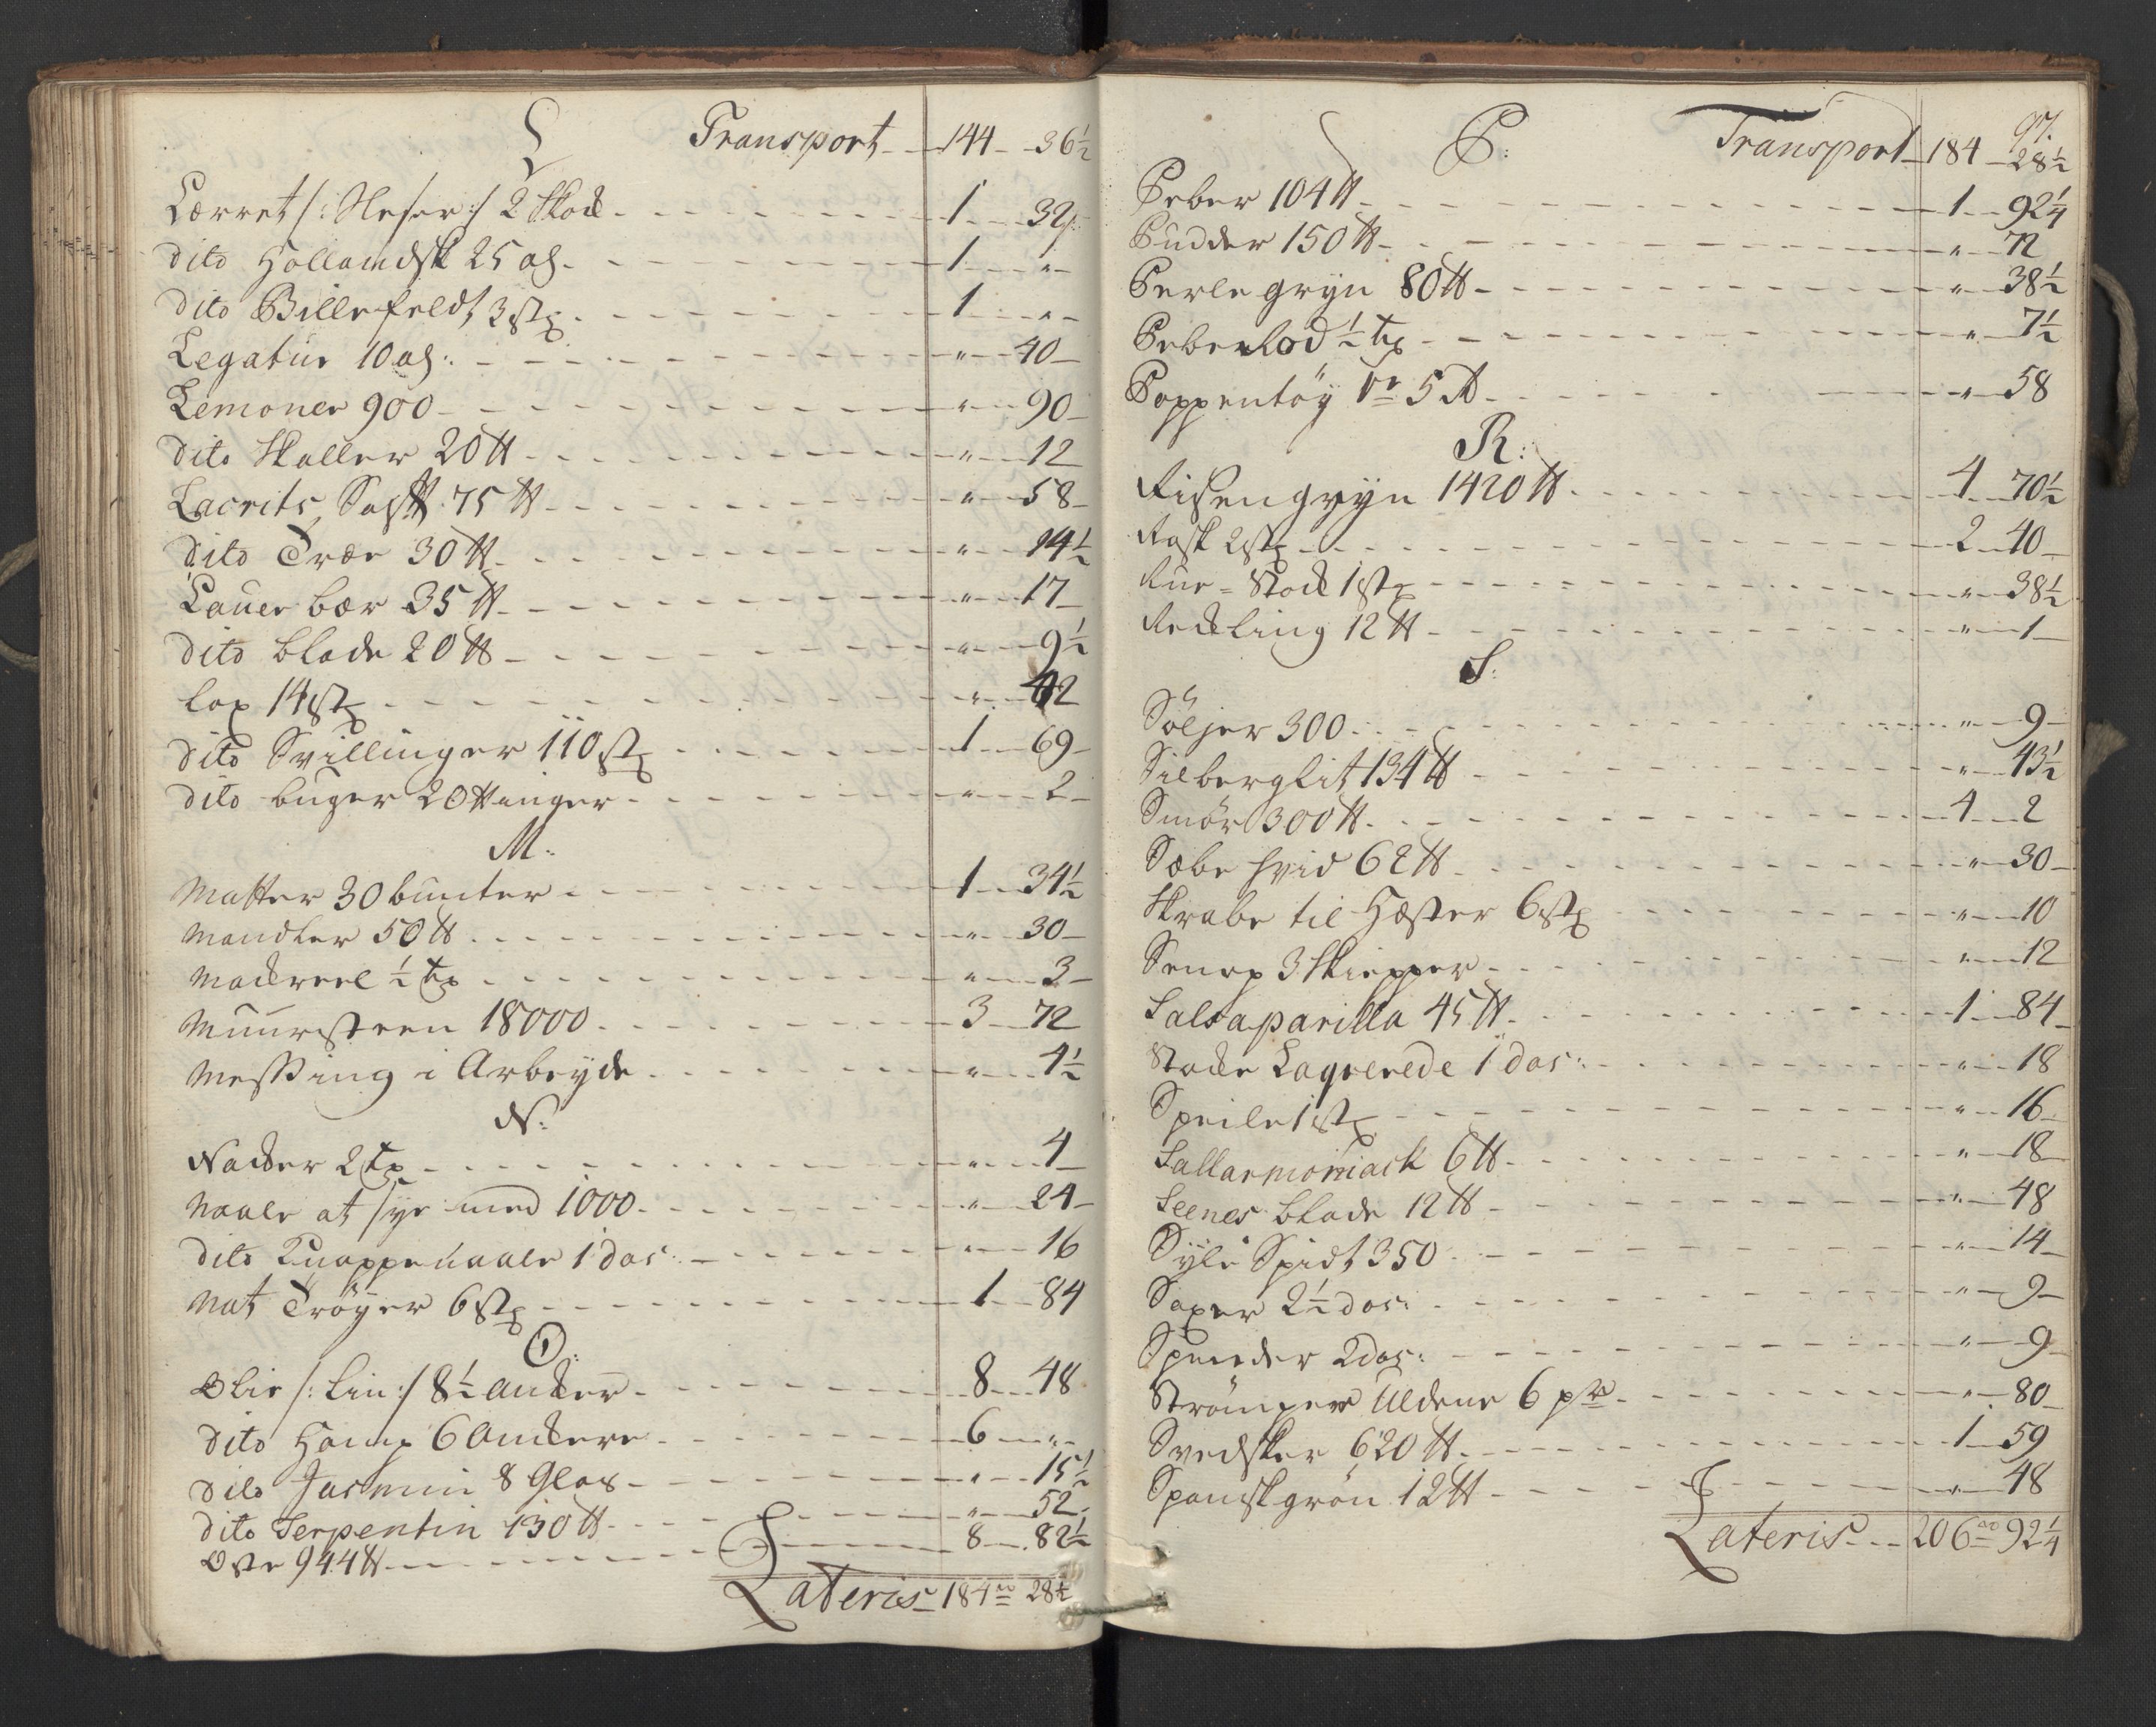 L Transport 144 - 36½
Lærret /: Sleser :/ 2 Skock - 1 - 32
dito Hollandsk 25 al: - 1 - "
dito Billefeldt 3 st: - 1 - "
Legatur 10 al: - " - 40
Lemoner 900 - " - 90
dito Skaller 20 ℔ - " - 12
Lacrits Saft 75 ℔ - " - 58
dito Træe 30 ℔ - " - 14½
Lauer bær 35 ℔ - " - 17
dito blade 20 ℔ - " - 9½
lax 14 st: - " - 42
dito Svillinger 110 st: - 1 - 69
dito buger 20 ttinger - " - 2
M:
Matter 30 bunter - 1 - 34½
Mandler 50 ℔ - " - 30
Mackreel ½ tø - " - 3
Muursteen 18000 - 3 - 72
Messing i Arbeyde - " - 4½
N:
Nødder 2 tø - " - 4
Naale at sye med 1000 - " - 24
dito Knappenaale 1 dos: - " - 16
Nat Trøyer 6 st: - 1 - 84
O:
Olie /: Lin :/ 8½ Ancker - 8 - 48
dito Hamp 6 Anckere - 6 - "
dito Jasmin 8 Glas - " - 15½
dito Serpentin 130 ℔ - " - 52
Oste 944 ℔ - 8 - 82½
Lateris 184 rd 28½
97.
P: Transport 184 - 28½
Peber 104 ℔ - 1 - 92¼
Pudder 150 ℔ - " - 72
Perlegryn 80 ℔ - " - 38½
PeberRod ½ tø - " - 7½
Poppentøy 5 - " - 58
R:
Risengryn 1420 ℔ - 4 - 70½
Rask 2 st: - 2 - 40
Rue = Stock 1 st: - " - 38½
Reckling 12 ℔ - " - 1
S:
Söljer 300 - " - 9
Silberglit 134 ℔ - " - 43½
Smör 300 ℔ - 4 - 2
Sæbe hvid 62 ℔ - " - 30
Skrabe til Hæster 6 st: - " - 10
Senop 3 Skiepper - " - 12
Salsaparilla 45 ℔ - 1 - 84
Stocke Laqverede 1 dos: - " - 18
Speile 1 st: - " - 16
Sallarmoniack 6 ℔ - " - 18
Seenes blade 12 ℔ - " - 48
Syle Spidt 350 - " - 14
Saxer 2½ dos: - " - 9
Spender 2 dos: - " - 9
Strömper Uldene 6 pr - " - 80
Svedsker 620 ℔ - 1 - 59
Spanskgrön 12 ℔ - " - 48
Lateris - 206 rd 92¼